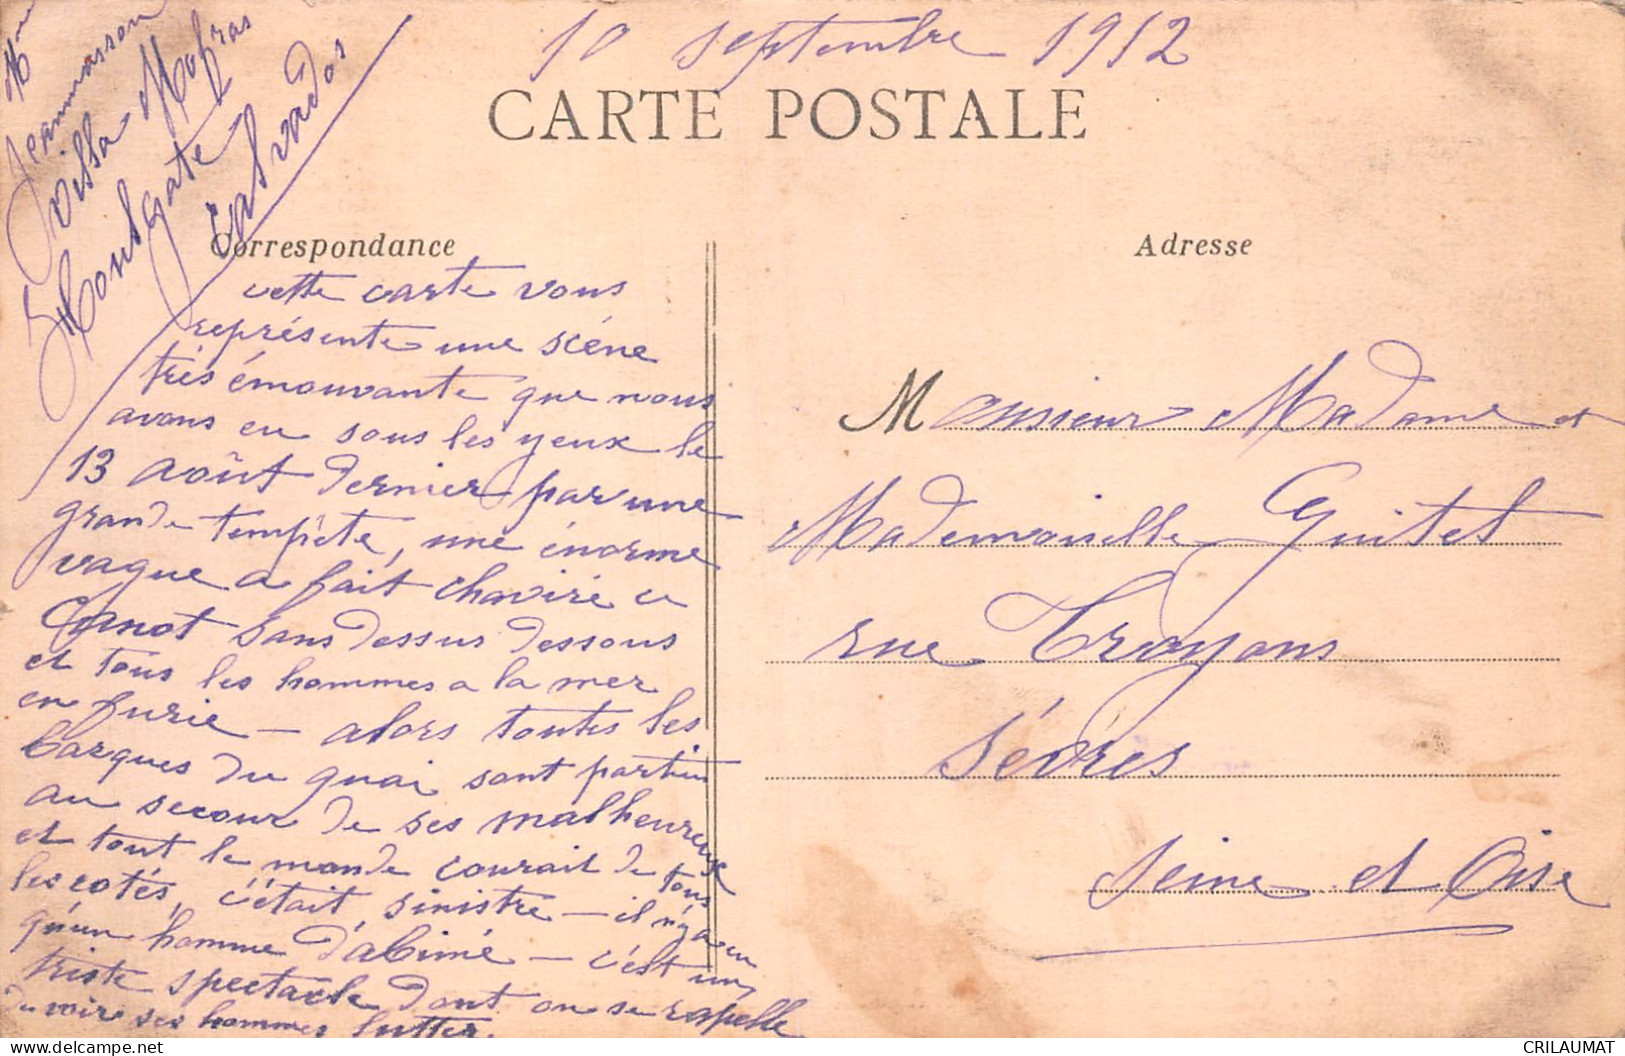 10 septembre 1912
CARTE POSTALE
Mme
Jeanmasson
villa Mogras
Houlgate
Calvados
Correspondance
cette carte vous
représente une scène
très émouvante que nous
avons eu sous les yeux le
13 août dernier par une
grande tempête, une énorme
vague a fait chaviré ce
Canot sans dessus dessous
et tous les hommes a la mer
en furie – alors toutes les
barques du quai sont parties
au secour de ses malheureux
et tout le monde courait de tous
les cotés, c'était sinistre – il n'y a eu
qu'un homme d'abimé – c'est un
triste spectacle dont on se rapelle
du voir ses hommes lutter
Adresse
Monsieur Madame et
Mademoiselle Guitel
rue Troyons
Sèvres
Seine et Oise
CRILAUMAT